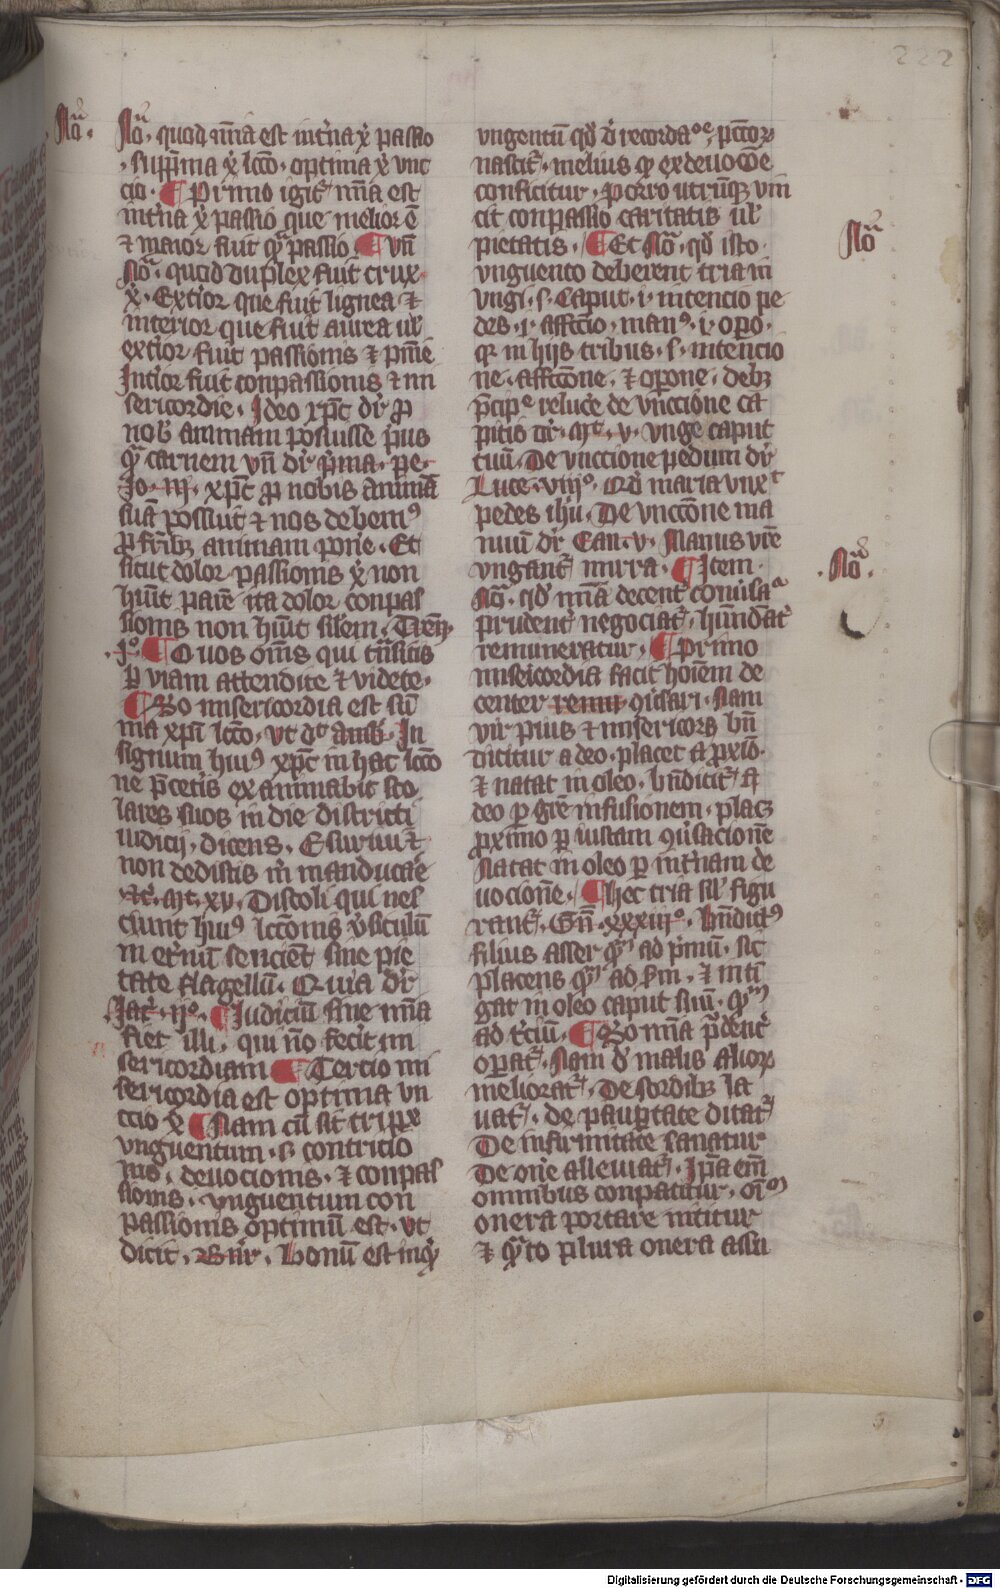 222
No͞.
No͞. quod mīa est int͛na x̓ passio
suppͤma x̓ lcc̄o. optima x̓ vnc
cio. ¶ Primo igit᷑ mīa est
int͛na x̓ passio que melior ē
⁊ maior fuit qͣ passio ¶ vn̄
No͞. quod duplex fuit crux
x̓. Ext̓ior que fuit lignea ⁊
interior que fuit aurea ul̓
ext̓ior fuit passionis ⁊ pn̄ie
Int̓ior fuit conpassionis ⁊ mi
sericordie. Ideo xp̄c dr̄ ꝓ
nob̓ animam posuisse pͥus
qͣ carnem vn̄ dr̄ pͥma. pe.
Jo. iij. xp̄c ꝓ nobis animā
suā posuit ⁊ nos debemꝰ
ꝓ fr̄ibꝫ animam pone͛. Et
sicut dolor passionis x̓ non
hūit parē ita dolor conpas
sionis non hūit sil̓em. Treñ.
.jͦ. ¶ O uos om̄s qui tn̄sitis
ꝑ viam attendite ⁊ videte.
¶ 2o misericordia est su̅
ma xp̄i lcc̄o. vt dt̓ amb̓. In
signum huiꝰ xp̄c in hac lcc̄o
ne p̄ cet̓is examinabit sco
lares suos in die districti
iudicij. dicens. Esuriui ⁊
non dedistis m̓ manducae͛
⁊c̓. Mt̓. xv. Discoli qui nes
ciunt huiꝰ lcc̄onis v̓siculū
in et̓nū sencient sine pie
tate flagellū. Quia dr̄
Jac̓. ijͦ. ¶ Judiciū sine mīa
fiet illi. qui nō fecit mi
sericordiam ¶ Tercio mi
sericordia est optima vn
ccio x̓ ¶ Nam cū sit triplex
vnguentum. s. contricio
nis. deuocionis. ⁊ conpas
sionis. vnguentum con
passionis optimū est. vt
dicit. Bn̄r. Bonū est inqͥ
vngentū qd̓ d̓ recordaͦᵉ. pcc̄oꝝ
nascit᷑. melius qͦ ex deuoc̄oe
conficitur. Porro utrūqꝫ vin
cit conpassio caritatis ul̓
pietatis. ¶ Et No͞. qd̓ isto
No͞
vnguento deberent tria in
vngi. s. Caput. i. intencio pe
des. i. affcc̄io, manꝰ. i. op̄o.
qr̄ in hijs tribus. s. intencio
ne. affcc̄one. ⁊ op̄one. debꝫ
p̄cipͤ relucē de vnccione ca
pitis dr̄. Mt̓. v. vnge caput
tuū. De vnccione pedum dr̄
Luce. viijͦ. Qd̓ maria vnxͭ
pedes ih̄u. De vncc̄one ma
nuū dr̄ Can. v. Manus vr̄e
vngant᷑ mirra. ¶ Item
No͞.
No͞. qd̓ mīa decent᷑ conuͥsaͬ
prudent᷑ negociat᷑. hūndāt᷑
remuneratur. ¶ Primo
misericordia facit hoīem de
center remur ꝯuͥsari. Nam
vir pius ⁊ misericors bn̄
dicitur a deo. placet a pxīo.
⁊ natat in oleo. bn̄dicit᷑ a
deo ꝑ gr̄e infusionem. placꝫ
ꝓximo ꝑ iustam ꝯuͥsacionē
Natat in oleo ꝑ int̓nam de
uocionē. ¶ hec tria sil̓ figu
rant᷑. Gn̄. xxxiijͦ. bn̄dictꝰ
filius asser qͣ ad pͥmū. sit
placens qͣ ad sm̄. ⁊ inti
gat in oleo caput suū. qͣᵐ
ad t̓ciū. ¶ 2o mīa pͥdent᷑
opat᷑. Nam d̓ malis alioꝝ
meliorat᷑. De sordibꝫ la
uat᷑. de paupertate ditat᷑
De infirmitate sanatur
De one̓ alleuiat᷑. Ip̄a em̄
omnibus conpatitur. oīᵐ
onera portare nititur
⁊ qͣto plura onera assu
Digitalisierung gefördert durch die Deutsche Forschungsgemeinschaft - DFG